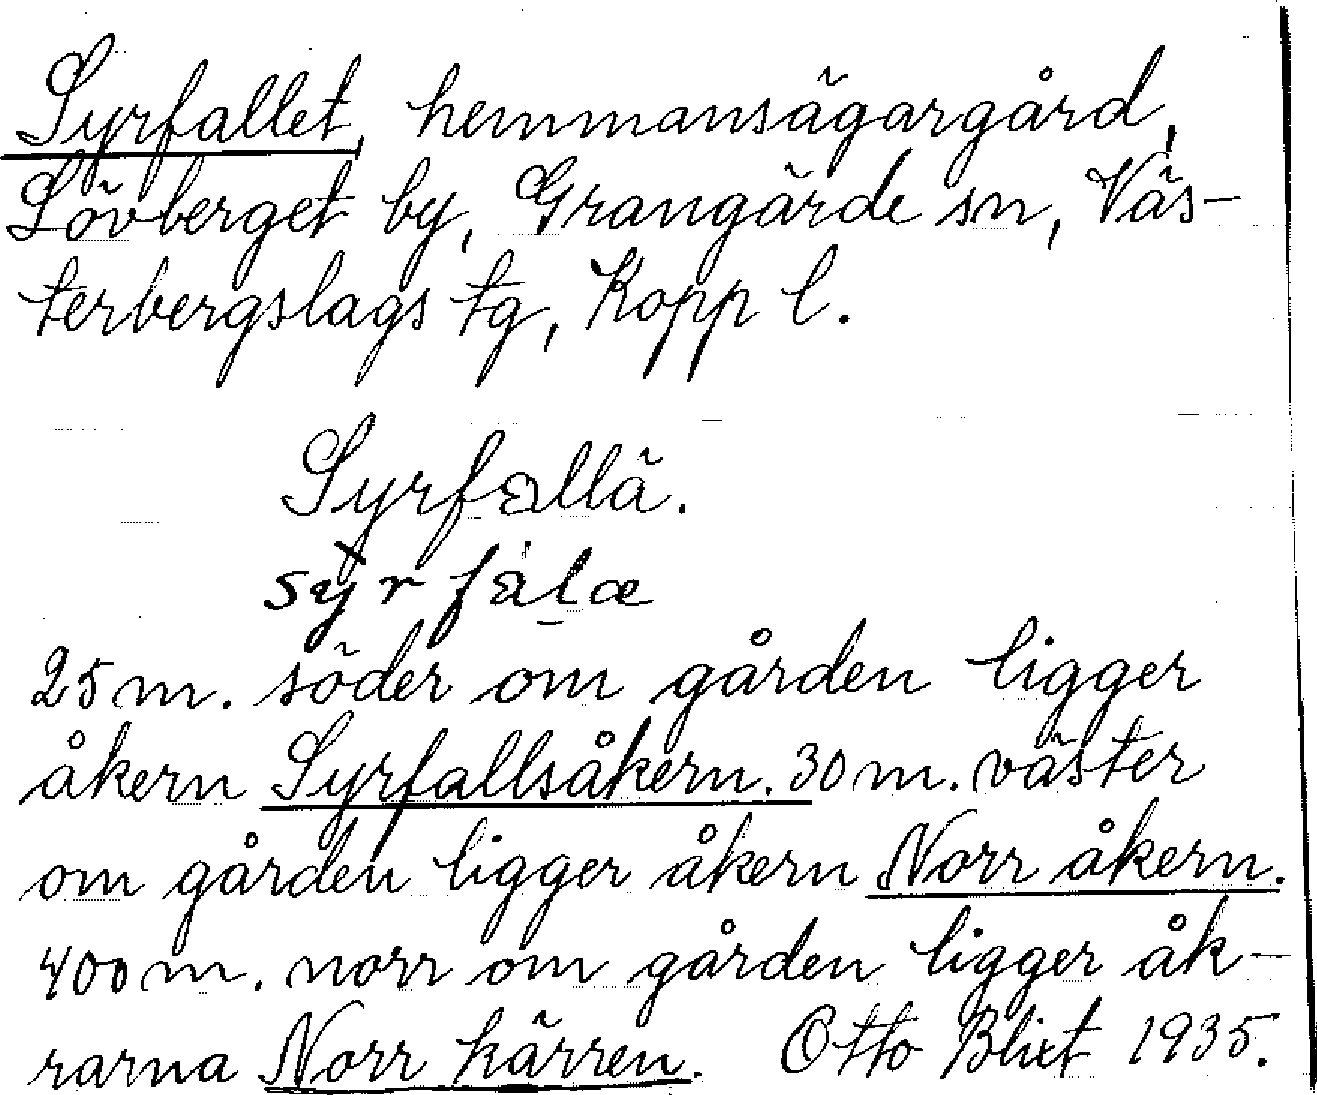 Syrfallet, hemmansägargård,
Lövberget by, Grangärde sn, Väs-
terbergslags tg, Kopp l.
Syrfallä.
sỳrfàlæ
25 m. söder om gården ligger
åkern Syrfallsåkern. 30 m. väster
om gården ligger åkern Norr åkern.
400 m. norr om gården ligger åk-
rarna Norr kärren. Otto Blixt 1935.